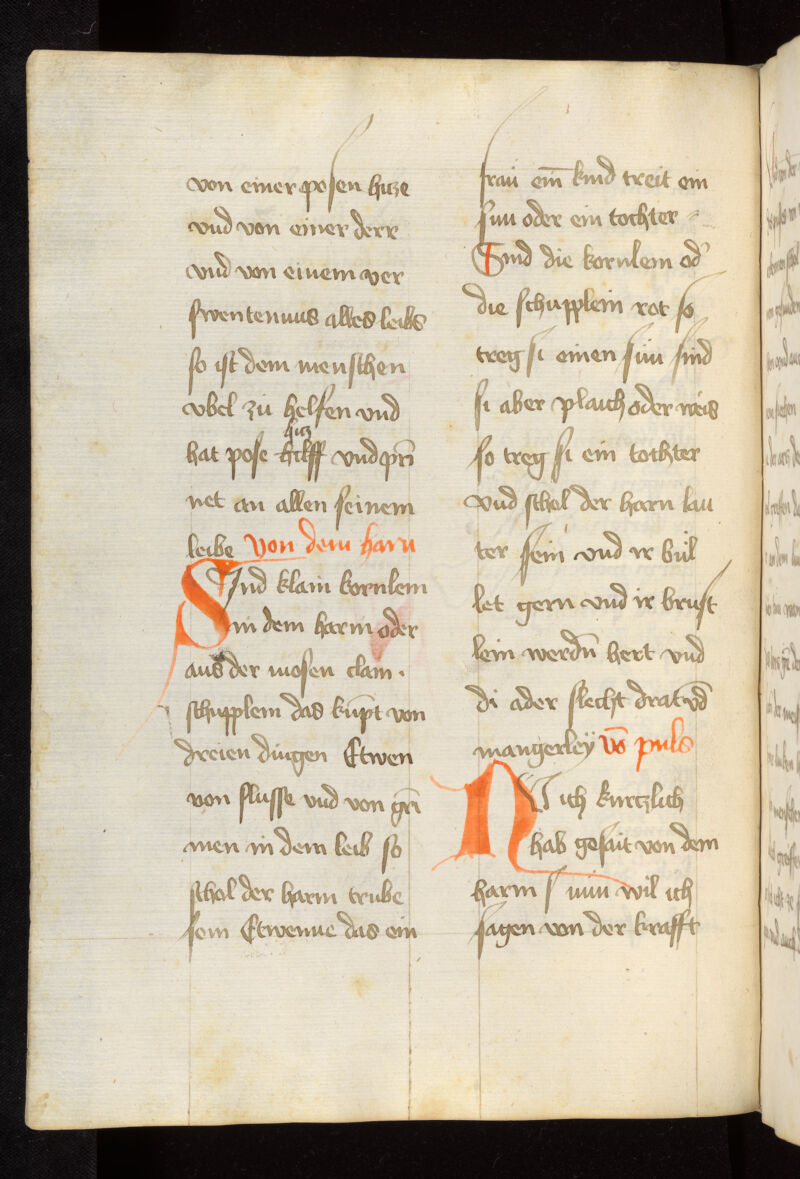 von einer posen hitze
vnd von einer derr
vnd von einem ver
swentennus alles leibs
so ist dem menschen
vbel zu helfen vnd
hitz
hat pose hilff vnd prī
net an allen seinem
leibe von dem harn
Sind klain kornlein
in dem harm oder
aus der mosen clain .
schupplein das kūpt von
dreien dingen Etwen
von flusse vnd von
men in dem leib so
schol der harm trube
sein Etwenne das ein
frau eīn kind treit ein
sun oder ein tochter
Sind die kornlein od'
die schupplein rot so
treg si einen sun sind
si aber plaich oder weis
so treg si ein tochter
vnd schol der harn lau
ter sein vnd ir bul
let gern vnd ir brust
lein werdn̄ hert vnd
di ader slecht drat vd̄
mangerley vō puls
NV ich kurczlich
hab gesait von dem
harm nun wil ich
sagen von der krafft